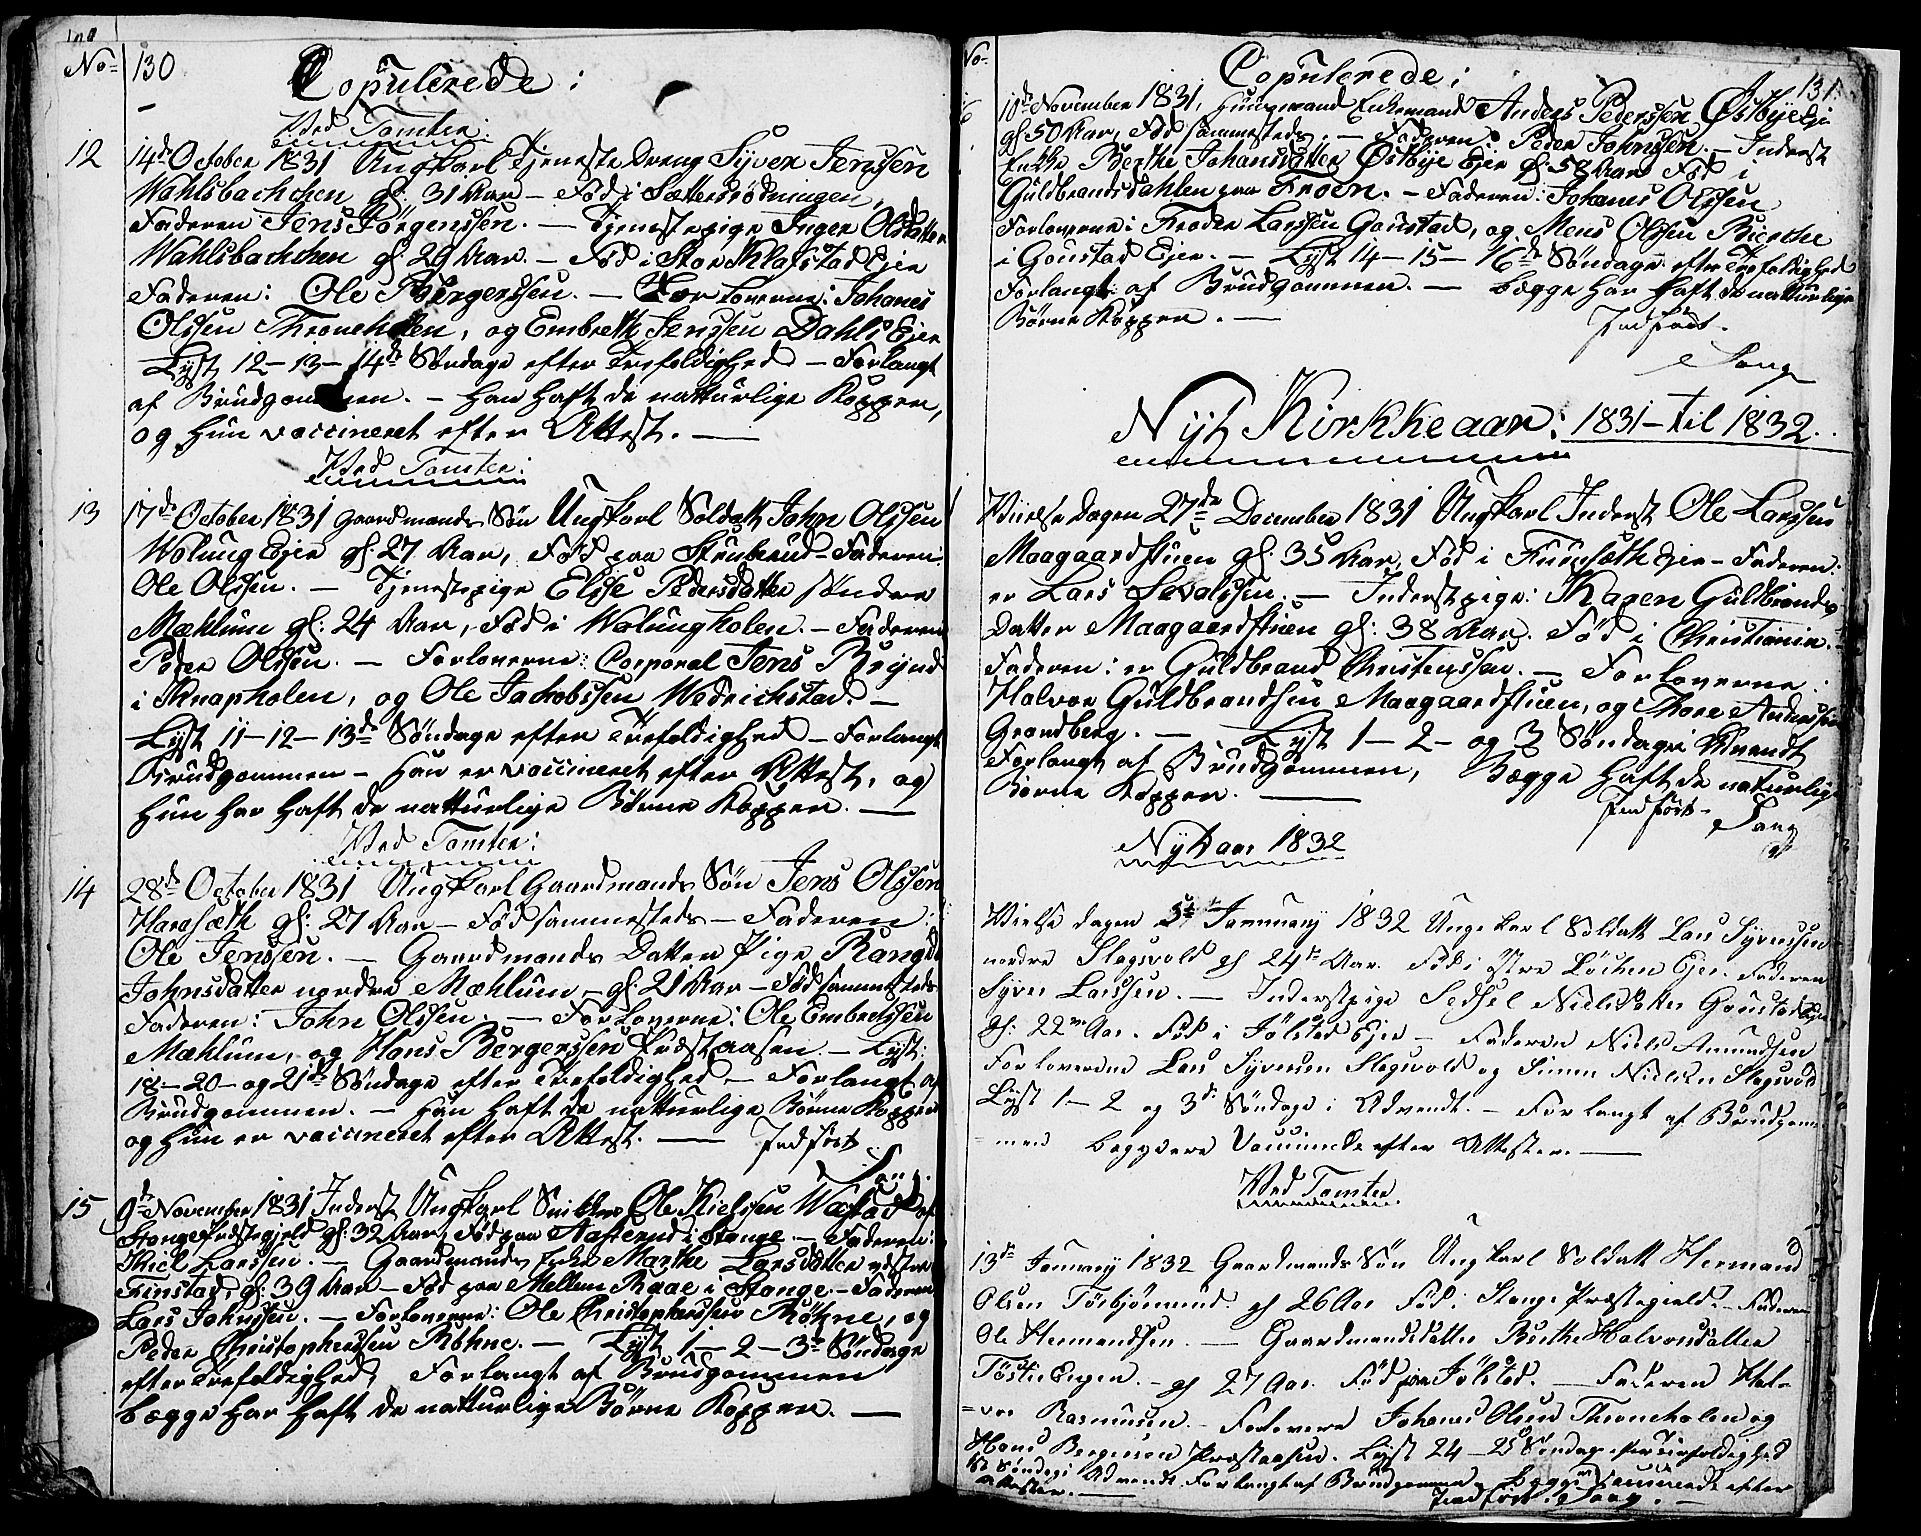 No= 130 Copulerede:
Ved Tomter:
12 14de October 1831 Ungkarl Tjeneste Dreng Syver Jenssen
Wahlsbachchen gl: 31 Aar – Fød i Sættersrødningen,
Faderen Jens Jörgenssen. – Tjenestepige Inger Olsdatter
Wahlsbachchen gl: 29 Aar. – Fød i Stor Klafstad Ejer
Faderen: Ole Bergerssen. – Forloverne: Johanes
Olssen Throneholen, og Embreth Jenssen Dahls Ejer
Lyst 12 – 13 – 14de Søndage efter Trefoldighed – Forlangt
af Brudgommen. – Han haft de natturlige Kopper,
og Hun vaccineret efter Attest. —
Ved Tomter:
13 17de October 1831 Gaardmands Søn Ungkarl Soldatt John Olssen
Wolung Ejer gl: 27 Aar, Fød paa Stubrud – Faderen:
Ole Olssen. – Tjenestepige Elsse Pedersdatter søndre
Mæhlum gl: 24 Aar, Fød i Wolungholen. – Faderen
Peder Olssen. – Forloverne: Corporal Jens Brynd
i Knapholen, og Ole Jachobssen Wedrichstad. –
Lyst 11 – 12 – 13de Søndage efter Trefoldighed – Forlangt
Brudgommen – Han er vaccineret efter Attest, og
Hun har haft de natturlige Børne Kopper. —
Ved Tomter:
14 28de October 1831 Ungkarl Gaardmands Søn Jens Olssen
Harasæth gl: 27 Aar – Fød sammesteds – Faderen:
Ole Jenssen. – Gaardmands Datter Pige Rangdi
Johnsdatter nordre Mæhlum – gl: 21 Aar – Fød sammesteds
Faderen: John Olssen. – Forloverne: Ole Embretssen
Mæhlum, og Hans Bergerssen Præstaasen. – Lyst:
18 – 20 – og 21de Søndage efter Trefoldighed – Forlangt af
Brudgommen. – Han haft de natturlige Børne Kopper
og Hun er vaccineret efter Attest. — Indført
Sang.
15 9de November 1831 Inderst Ungkarl Snikker Ole Kielssen af
Stange Præstegjeld gl: 32 Aar, Fød paa i Stange – Faderen:
Kiel Larssen. – Gaardmands Enke Marthe Larsdatter
Finstad, gl: 39 Aar – Fød paa Mellem Raae i Stange. – Faderen
Lars Johnssen. – Forloverne: Ole Christopherssen Röhne, og
Peder Christopherssen Röhne. – Lyst 1 – 2 – 3de Søndage
efter Trefoldighed, Forlangt af Brudgommen
begge har haft de natturlige Børne Kopper. —
No= Copulerede: 131.
6 November 1831, Huusmand Enkemand Anders Pederssen Østbye Eje
gl: 50 Aar, Fød sammesteds. – Faderen: Peder Johnssen. – Inderst
Enkke Berthe Johansdatter Østbye Ejer gl: 58 Aar Fød i
Guldbrandsdahlen paa Froen. – Faderen: Johanes Olssen
Forloverne: Larssen Goustad, og Mons Olssen Bierche
i Goustad Ejer. – Lyst 14 – 15 – 16de Søndage efter Trefoldighed
Forlangt af Brudgommen. – begge har haft de natturlige
Børne Kopper. — Indført.
Sang
Nyt Kirkkeaar: 1831 – til 1832.
1 Vielse dagen 27de December 1831 Ungkarl Inderst Ole Larssen
Maagaardstuen gl: 35 Aar, Fød i Furusæth Ejer – Faderen:
er Lars Sevalssen. – Inderstpige: Karen Guldbrands
Datter Maagaardstuen gl: 38 Aar. Fød i Christiania. –
Faderen: er Guldbrand Christenssen. – Forloverne:
Halvor Guldbrandsen Maagaardstuen, og Thore Anderssen
Grandberg. – Lyst 1 – 2 – og 3 Søndage i Advendt
Forlangt af Brudgommen, Begge haft de naturlige
Børne Kopper. — Indført – Sang
Nytaar 1832
Vielse dagen 5te January 1832 Ungekarl Soldatt Lars Syverssen
nordre Slagsvold gl 24de Aar. Fød i Østre Löchen Ejer. Faderen
Syver Larssen. – Inderstpige Sedsel Nielsdatter Goustad Ejer
gl: 22 Aar. Fød i Jölstad Ejer – Faderen Niels Amundsen
Forloverne Lars Syversen Slagsvold og Simen Nielsen Slagsvold
Lyst 1 – 2 og 3de Søndage i Advendt. – Forlangt af Brudgom=
=men begge ere Vaccinerede efter Attester. —
Ved Tomter.
13de January 1832 Gaardmands Søn Ungkarl Soldatt Hermand
Olsen Törbjörnrud gl 26 Aar Fød i Stange Præstegield. – Faderen
Ole Hermandsen. – Gaardmandsdatter Berthe Halvorsdatter
Engen. – gl 27 Aar. Fød paa Jölstad. – Faderen Hal=
=vor Rasmusen. – Forlovere Johanes Olsen Throneholen og
Hans Bergersen Præstaasen. Lyst 24 – 25 Søndag efter Trefoldighed
1st Søndag i Advendt Forlangt af Brudgommen. Begge Vaccinerede efter
Attester. — Indført. Sang. –